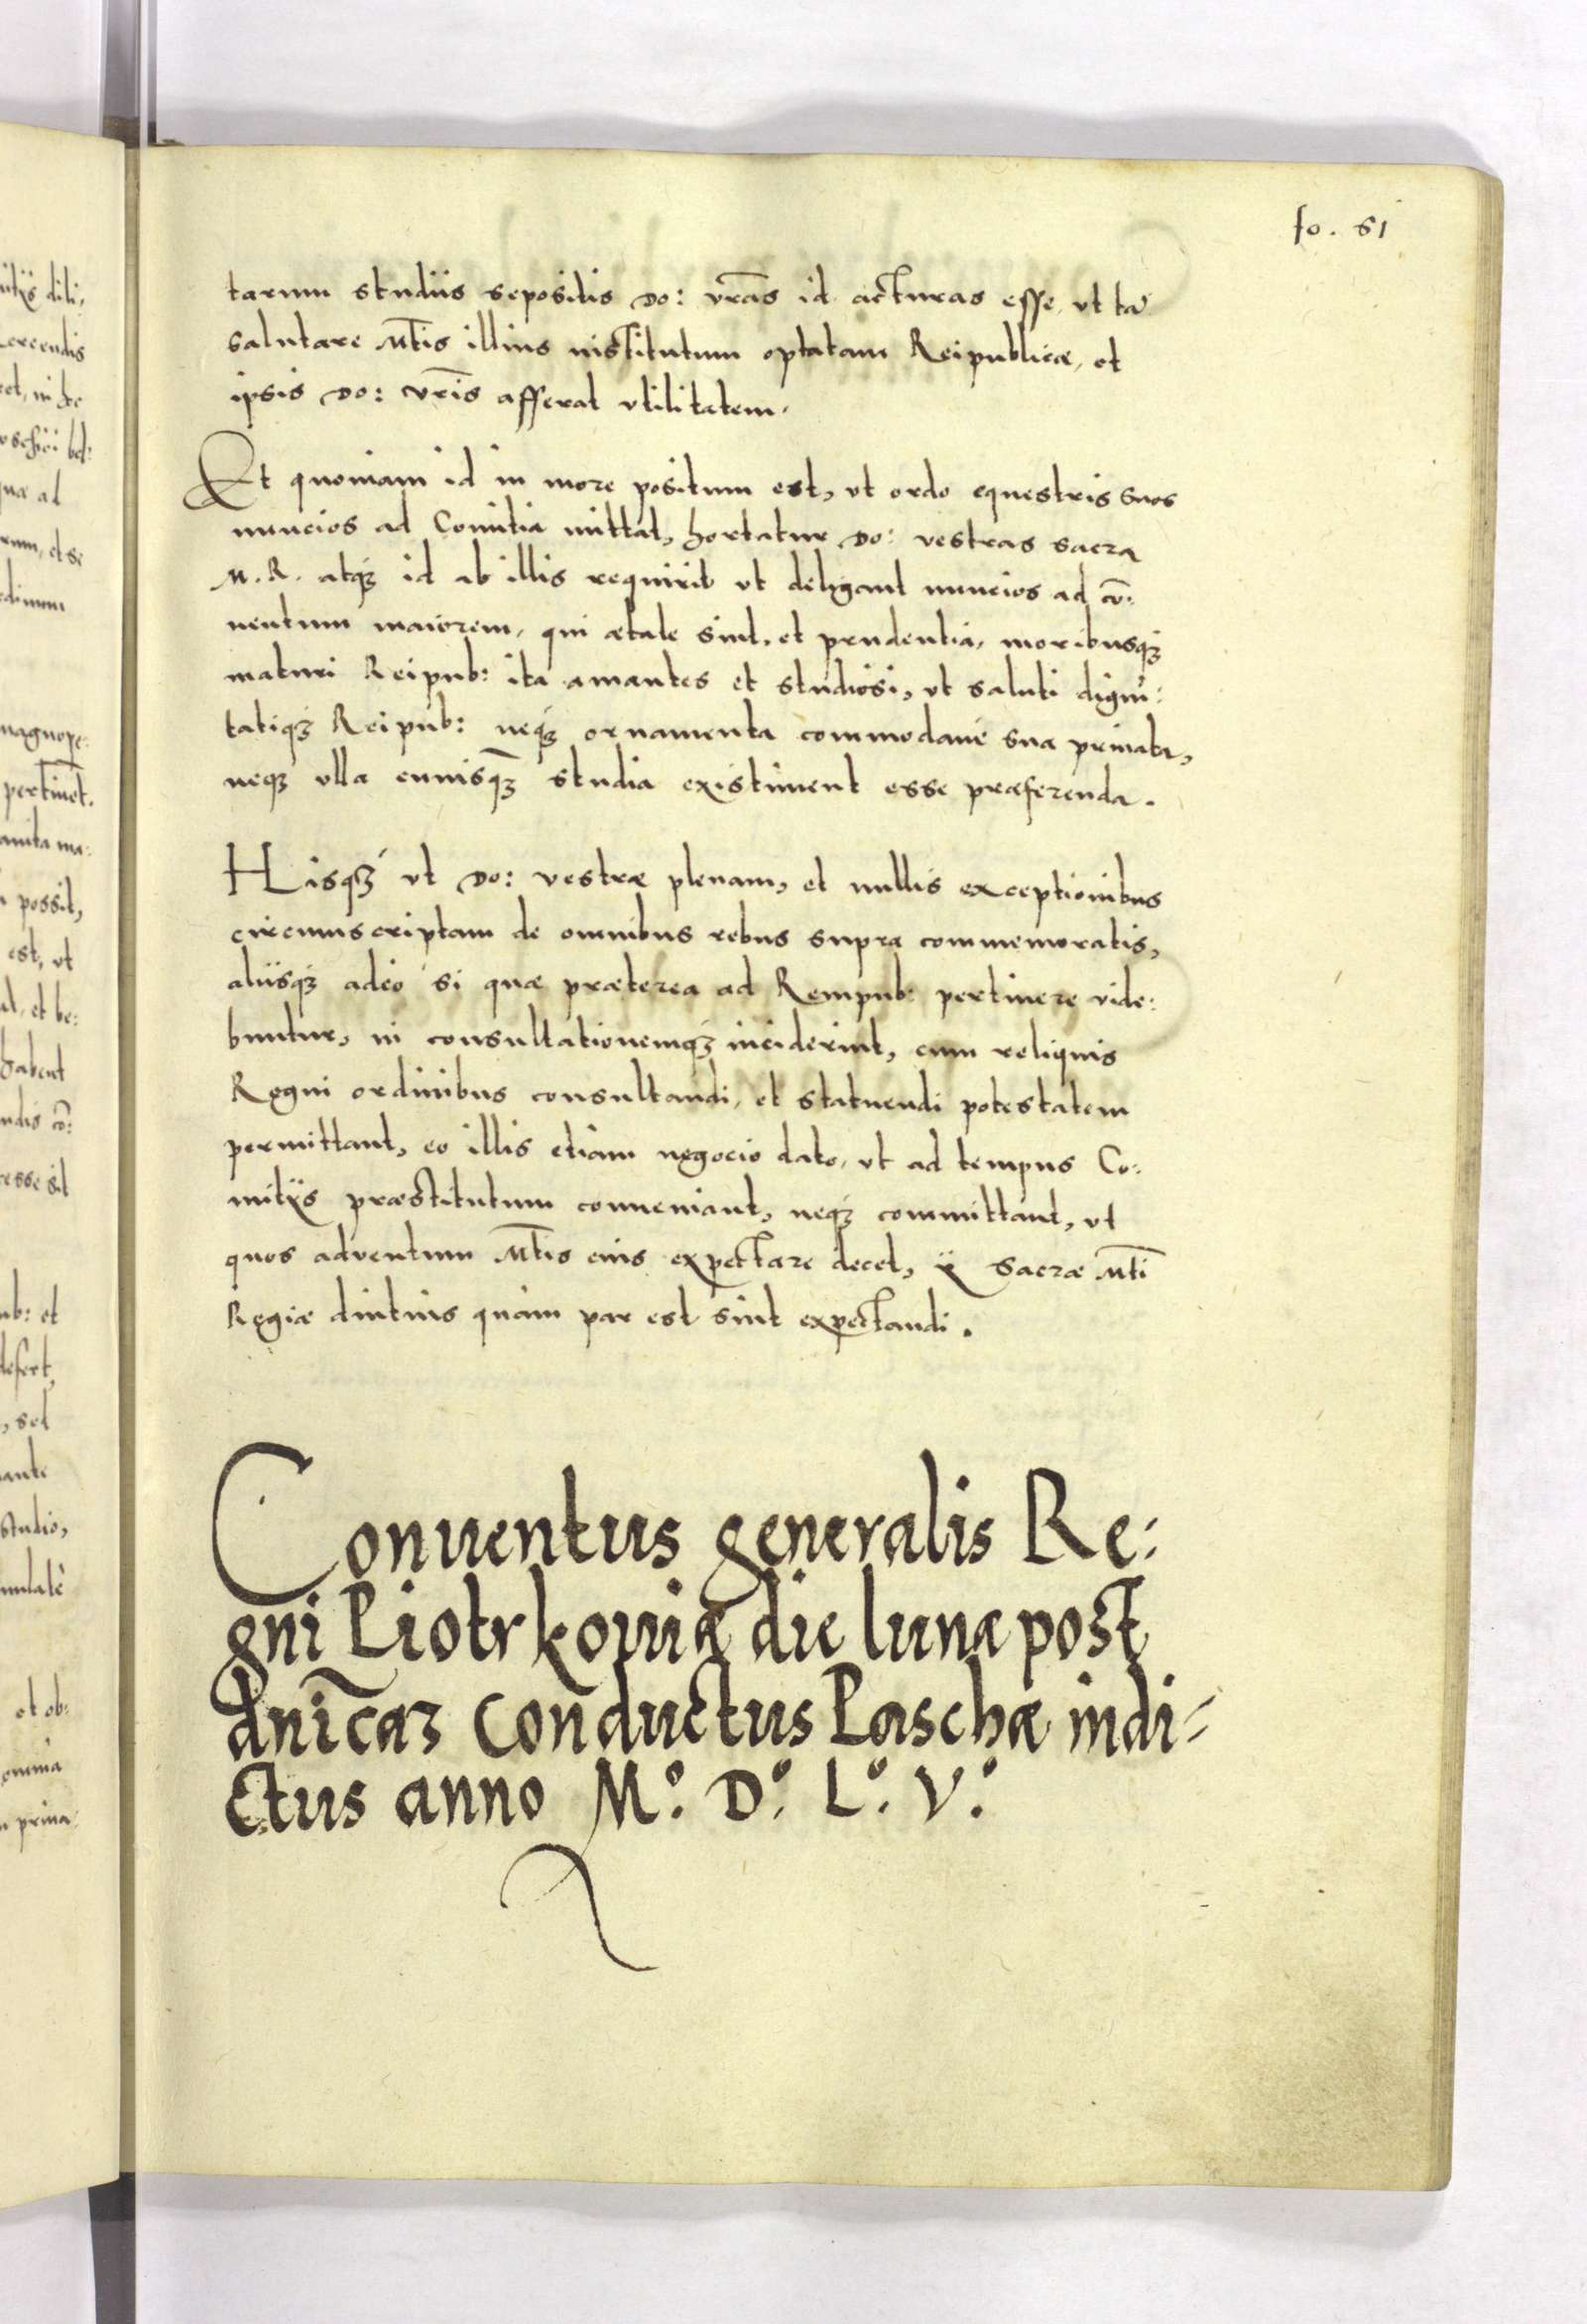 fo. 51
tarum studiis sepositis Do: vr̃as id acturas esse, ut tã
salutare Mt̃is illius institutum optatam Reipublicæ, et
ipsis Do: vr̃is afferat utilitatem.
Et quoniam id in more positum est, ut ordo equestris suos
nuncios ad Comitia mittat, hortatur Do: vestras sacra
M. R. atqꝫ id ab illis requirit ut deligant nuncios ad cõ:
uentum maiorem, qui ætate sint, et prudentia, moribusqꝫ
maturi Reipub: ita amantes et studiosi, ut saluti digni:
tatiqꝫ Reipub: neqꝫ ornamenta commodaue sua priuata,
neqꝫ ulla cuiusqꝫ studia existiment esse præferenda.
Hisqꝫ ut Do: vestræ plenam, et nullis exceptionibus
circumscriptam de omnibus rebus supra commemoratis,
aliisqꝫ adeo si quæ præterea ad Rempub: pertinere vide:
buntur, in consultationemqꝫ inciderint, cum reliquis
Regni ordinibus consultandi, et statuendi potestatem
permittant, eo illis etiam negocio dato, ut ad tempus Co:
mitijs præstitutum conueniant, neqꝫ committant, ut
quos aduentum Mt̃is eius expectare decet, ij Sacræ Mt̃i
Regiæ diutius quàm par est sint expectandi.
Conuentus generalis Re:
gni Piotrkouiæ die lunæ post
dn̄icaȝ Conductus Paschæ indi-
ctus anno M.º D.º L.º V.º